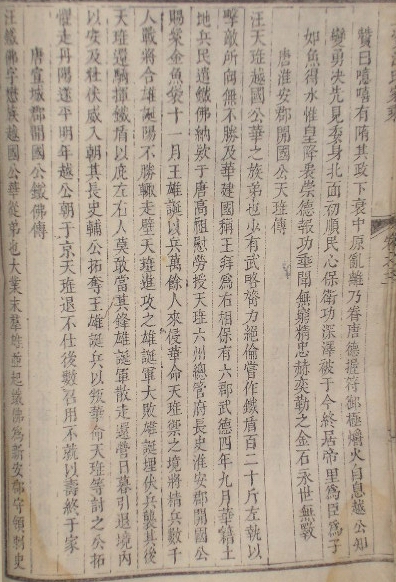 贊曰嘻嘻有隋其政下衰中原亂離乃眷唐德握符御極爝火自息越公知
變勇決先見委身北面初順民心保衛功深澤被于今終居帝里為臣為子
如魚得水惟皇降衷崇德報功垂聞無窮精忠赫奕勒之金石永世無斁
唐淮安郡開國公天瑤傳
汪天瑤越國公華之族弟也少有武略膂力絕倫嘗作鐵盾百二十斤左執以
擊敵所向無不勝及華建國稱王拜為右相保有六郡武德四年九月華籍土
地兵民遣鐵佛納款于唐高祖慰勞授天瑤六州總管府長史淮安郡開國公
賜紫金魚袋十一月王雄誕以兵萬餘人來侵華命天瑤禦之境將精兵數千
人戰將合雄誕陽不勝輙走壁天瑤進攻之雄誕軍大敗雄誕埋伏兵醜其後
天瑤還騎揮鐵盾以庇左右人莫敢當其鋒雄誕軍散走還營日暮引退境內
以安及杜伏威入朝其長史輔公拓奪王雄誕兵以叛華命天瑤等討之公拓
懼走丹陽遂平明年越公朝于京天瑤退不仕後數召用不就以壽終于家
唐宣城郡開國公鐵佛傳
汪鐵佛字懋族越國公華從弟也大業末羣雄並起鐵佛為新安郡守領刺史